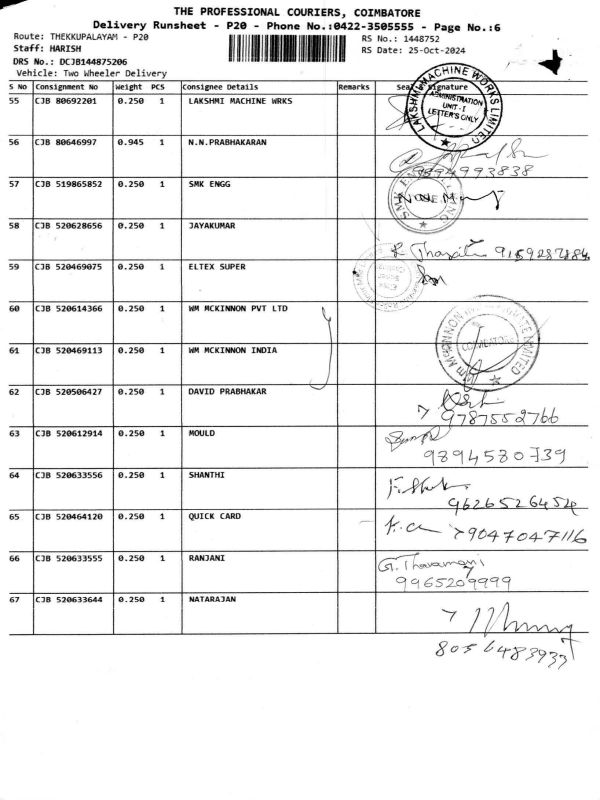 THE PROFESSIONAL COURIERS, COIMBATORE
Delivery Runsheet - P20 - Phone No.:0422-3505555 - Page No.:6
Route: THEKKUPALAYAM - P20
RS No.: 1448752
Staff: HARISH
RS Date: 25-Oct-2024
DRS No.: DCJB144875206
Vehicle: Two Wheeler Delivery
S No Consignment No Weight PCS Consignee Details Remarks Seal Signature
55 CJB 80692201 0.250 1 LAKSHMI MACHINE WRKS
LAKSHMI MACHINE WORKS LIMITED
ADMINISTRATION
UNIT-I
LETTER'S ONLY
56 CJB 80646997 0.945 1 N.N.PRABHAKARAN
9894993838
57 CJB 519865852 0.250 1 SMK ENGG
58 CJB 520628656 0.250 1 JAYAKUMAR
59 CJB 520469075 0.250 1 ELTEX SUPER
60 CJB 520614366 0.250 1 WM MCKINNON PVT LTD
61 CJB 520469113 0.250 1 WM MCKINNON INDIA
COIMBATORE
62 CJB 520506427 0.250 1 DAVID PRABHAKAR
9787552766
63 CJB 520612914 0.250 1 MOULD
9894580739
64 CJB 520633556 0.250 1 SHANTHI
9626526454
65 CJB 520464120 0.250 1 QUICK CARD
9047047116
66 CJB 520633555 0.250 1 RANJANI
G. Thavamani
9965209999
67 CJB 520633644 0.250 1 NATARAJAN
8056483933